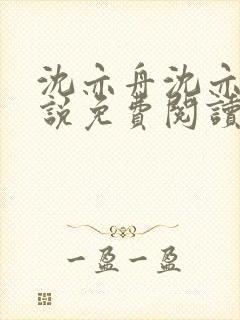 沈亦舟沈亦
說免費閱讀
一盈一盈